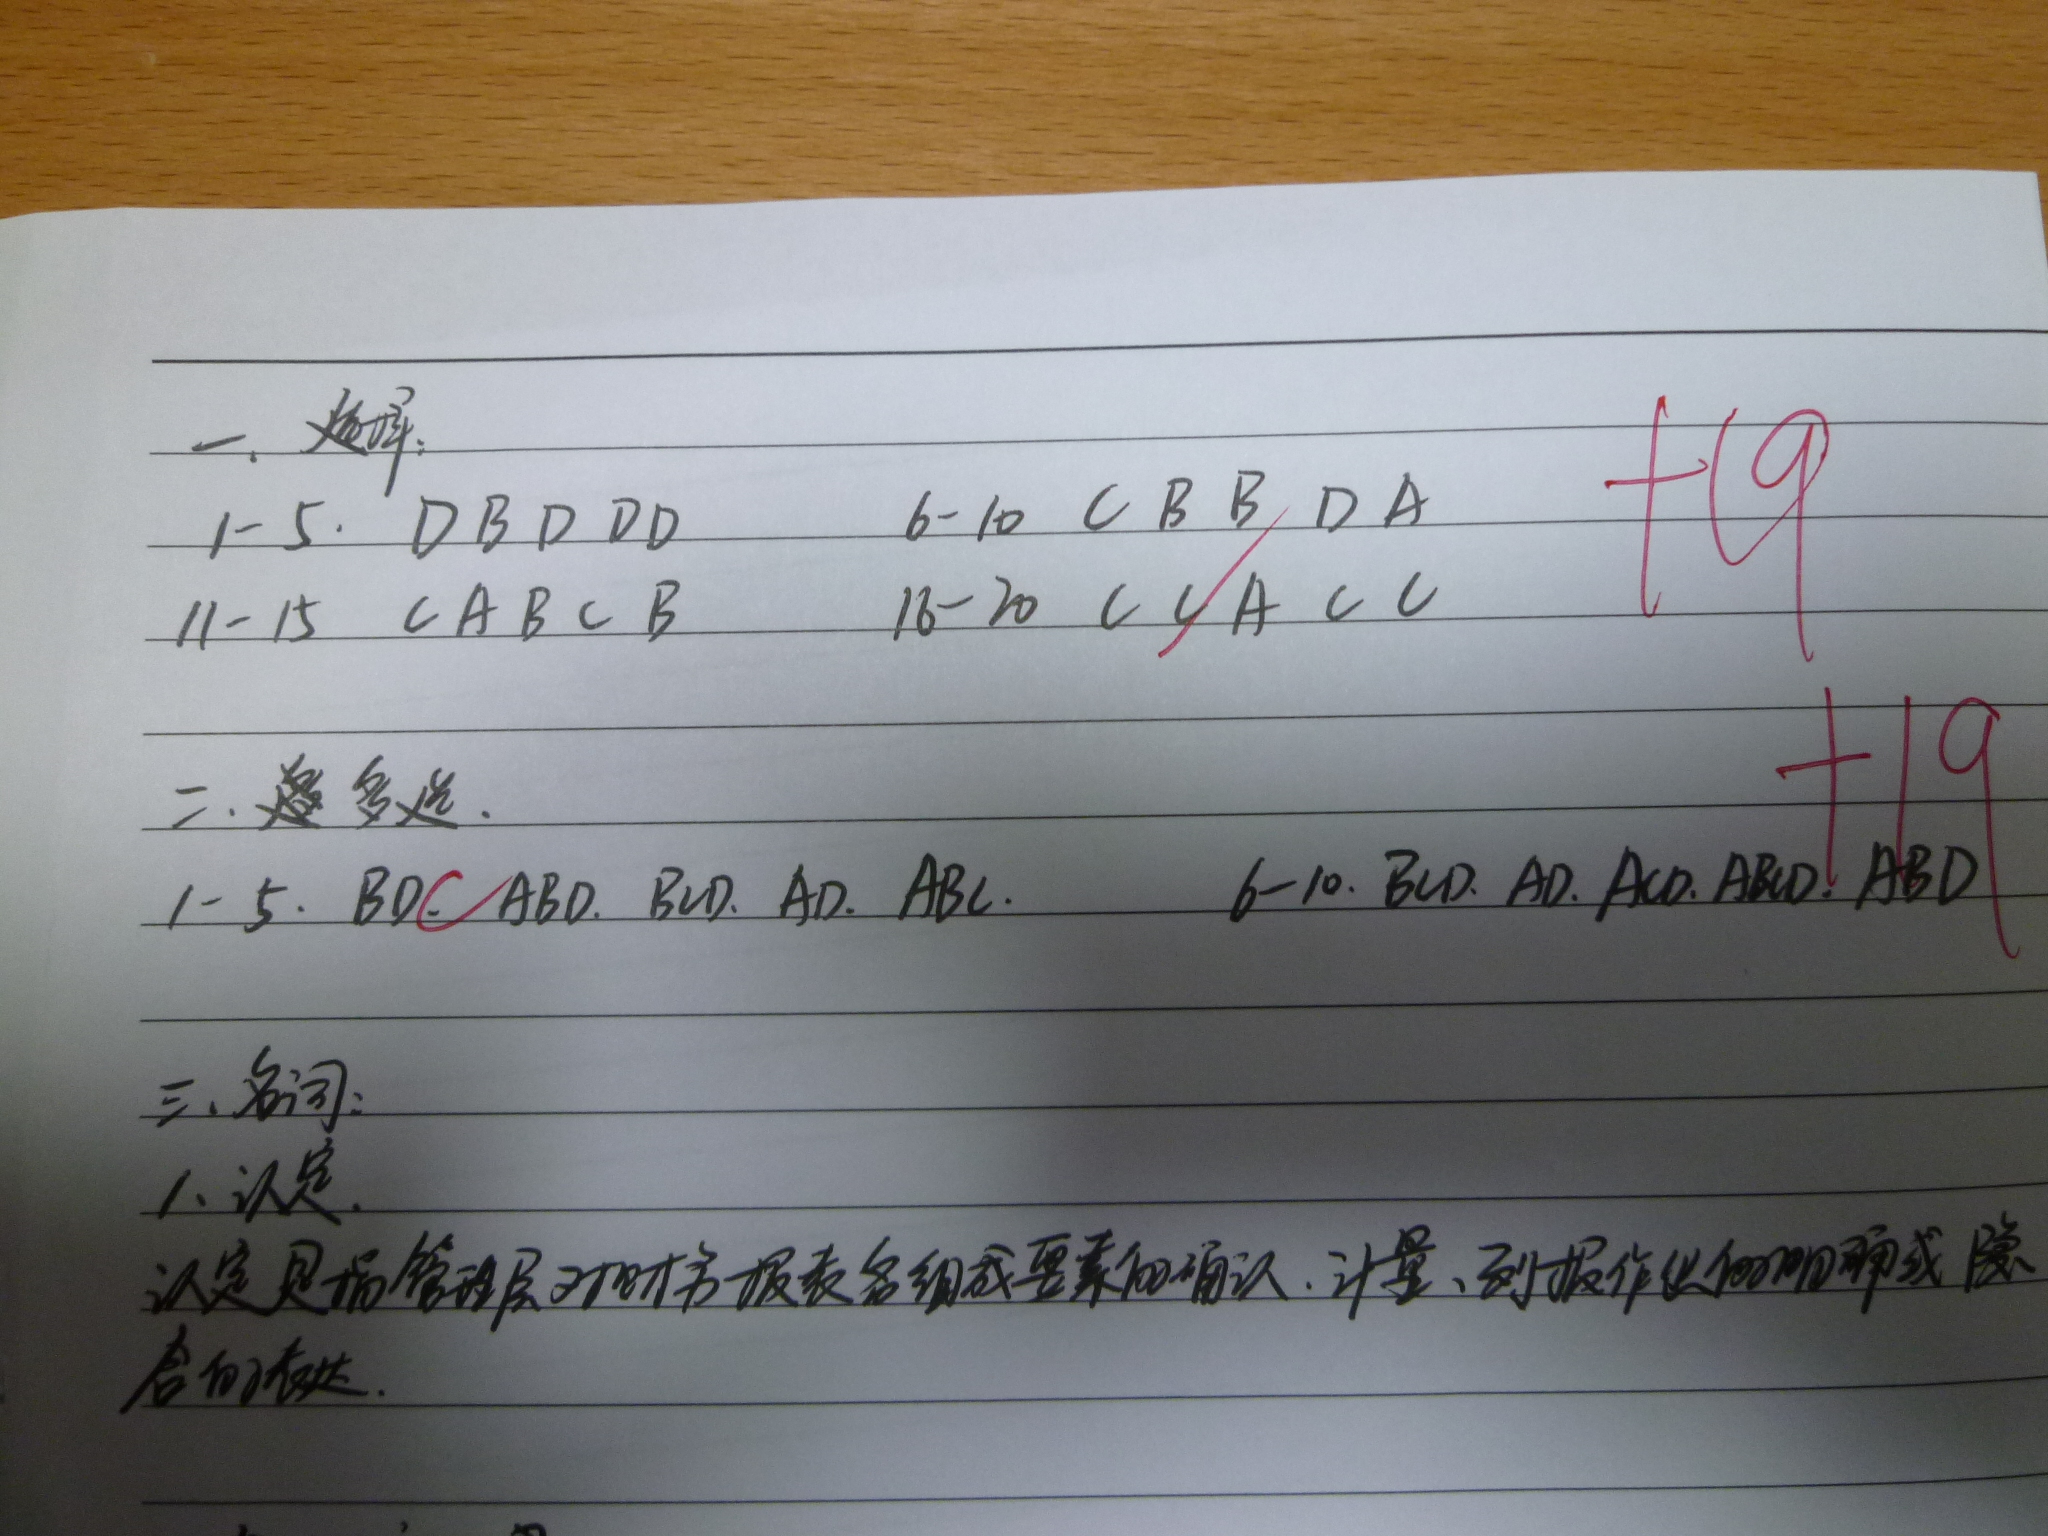 一、选择：
1-5. D B D D D 6-10 C B B D A +19
11-15 C A B C B 16-20 C C A C C
二. 多选. +19
1-5. BD. C ABD. BCD. AD. ABC. 6-10. BCD. AD. ACD. ABCD. ABD
三、名词：
1、认定.
认定是指管理层对财务报表各组成要素的确认.计量、列报作出的明确或隐
含的表达.